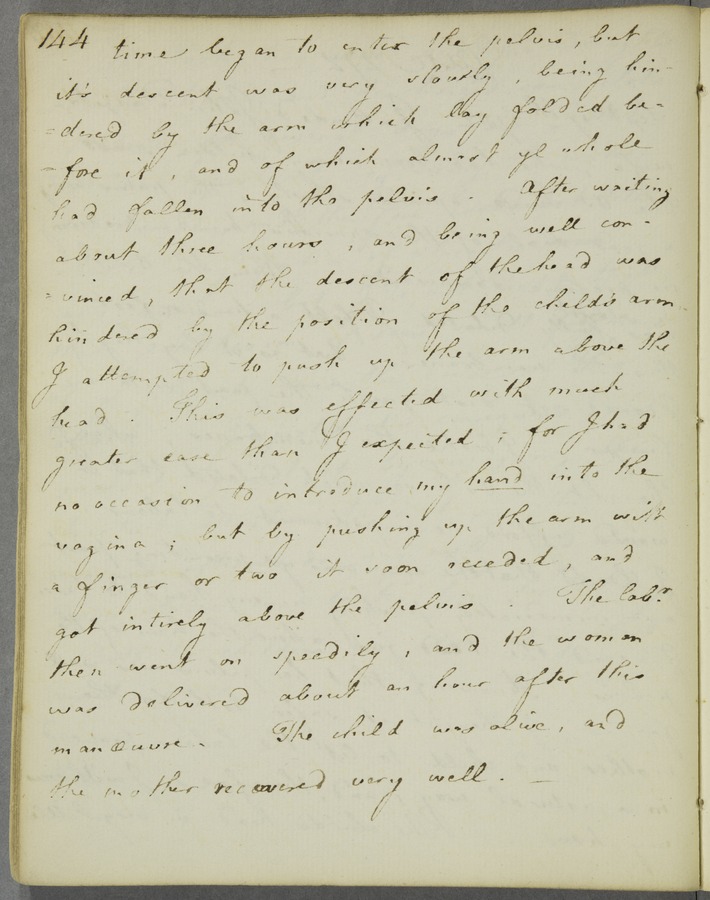 144
time began to enter the pelvis, but
it's descent was very slowly, being hin-
=dered by the arm which lay folded be-
-fore it, and of which almost ye whole
had fallen into the pelvis. After waiting
about three hours, and being well con-
=vinced, that the descent of the head was
hindered by the position of the child's arm
I attempted to push up the arm above the
head. This was effected with much
greater ease than I expected; for I had
no occasion to introduce my hand into the
vagina; but by pushing up the arm with
a finger or two it soon receded, and
got intirely above the pelvis. The labr.
then went on speedily, and the woman
was delivered about an hour after this
manœuvre. The child was alive, and
the mother recovered very well. —